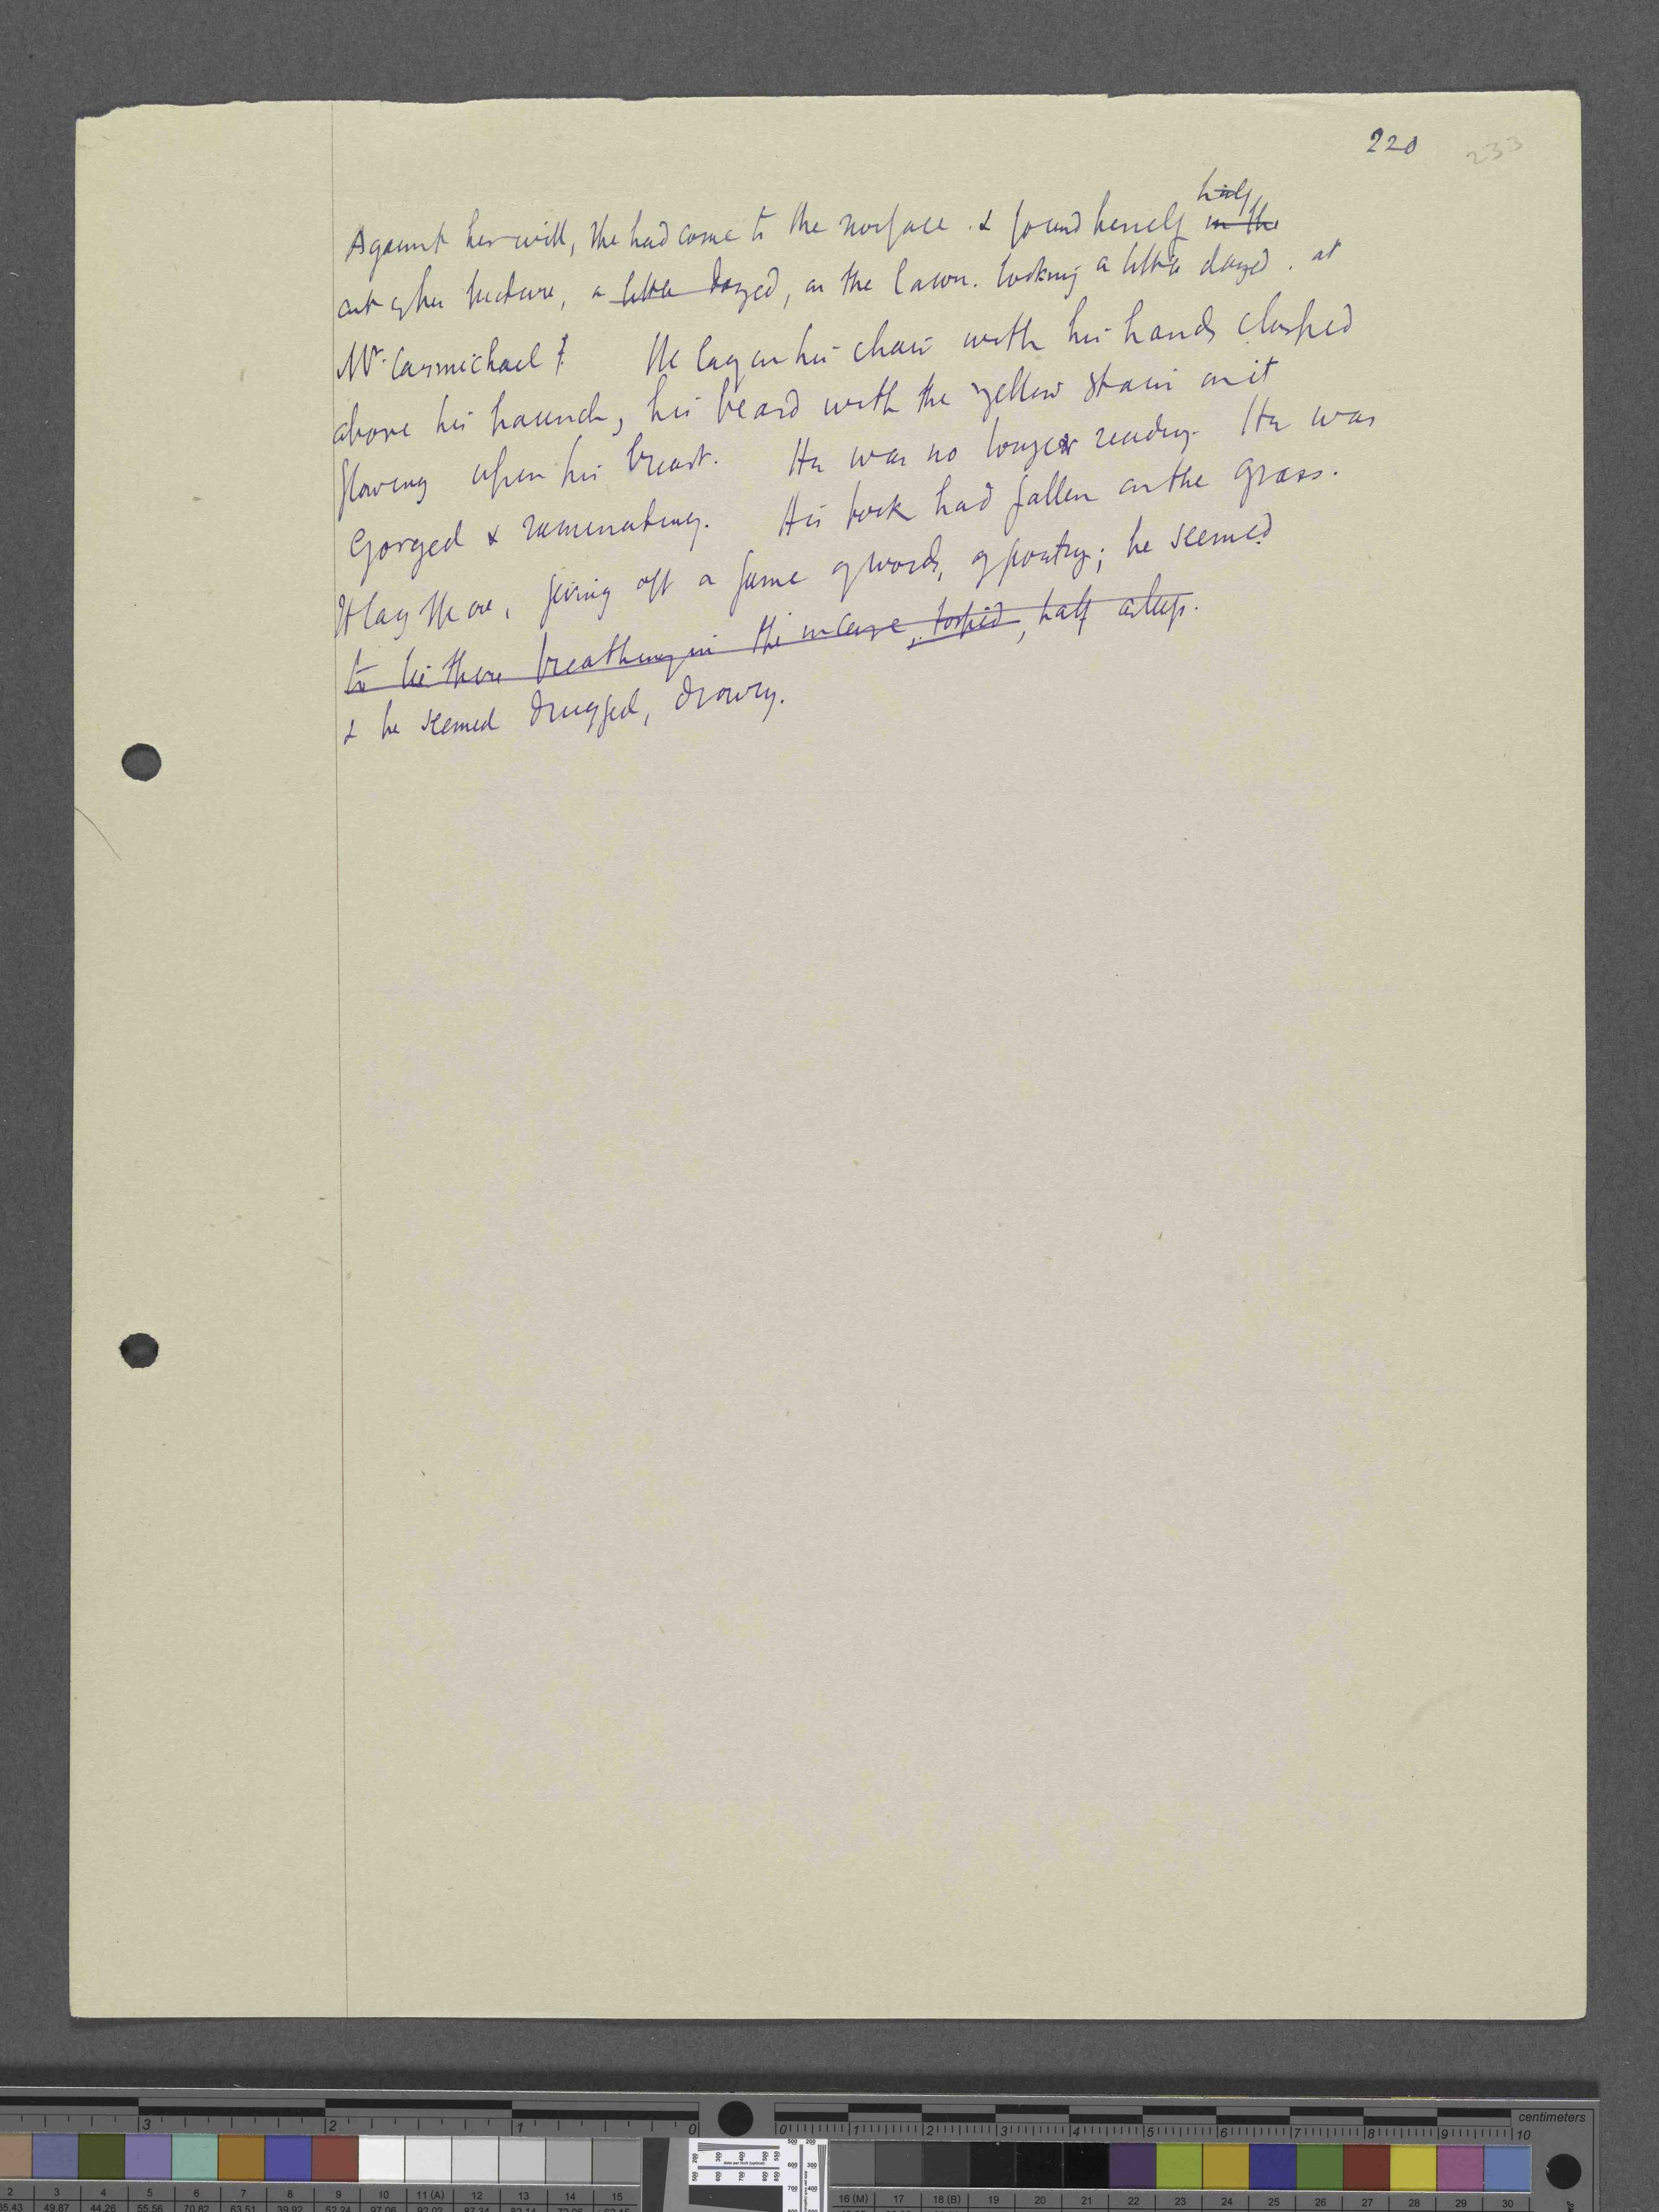 220 233
half
Against her will, she had come to the surface. & found herself in the
out of her picture, a little dazed, on the lawn. looking a little dazed. at
Mr. Carmichael. He lay in his chair with his hands clasped
above his haunch, his beard with the yellow stain on it
flowing upon his breast. He was no longer reading. He was
Gorged & ruminating. His book had fallen on the grass.
It lay there, giving off a fume of words, of poetry; he seemed
to lie there breathing in the incense, torpid, half asleep.
& he seemed drugged, drowsy.
3 2 1 0 0 1 2 3 4 5 6 7 8 9 10
centimeters
2 3 4 5 6 7 8 9 10 11 (A) 12 13 14 15 16 (M) 17 18 (B) 19 20 21 22 23 24 25 26 27 28 29 30